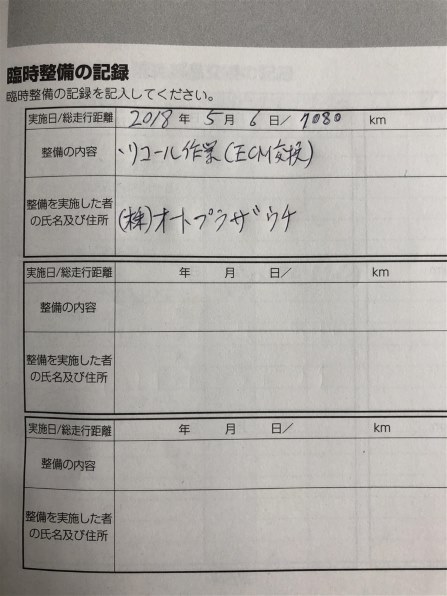 臨時整備の記録
臨時整備の記録を記入してください。
実施日/総走行距離 2018 年 5 月 6 日/ 7080 km
整備の内容 ・リコール作業(ECM交換)
整備を実施した者の氏名及び住所 (株)オートプラザウチ
実施日/総走行距離 年 月 日/ km
整備の内容
整備を実施した者の氏名及び住所
実施日/総走行距離 年 月 日/ km
整備の内容
整備を実施した者の氏名及び住所